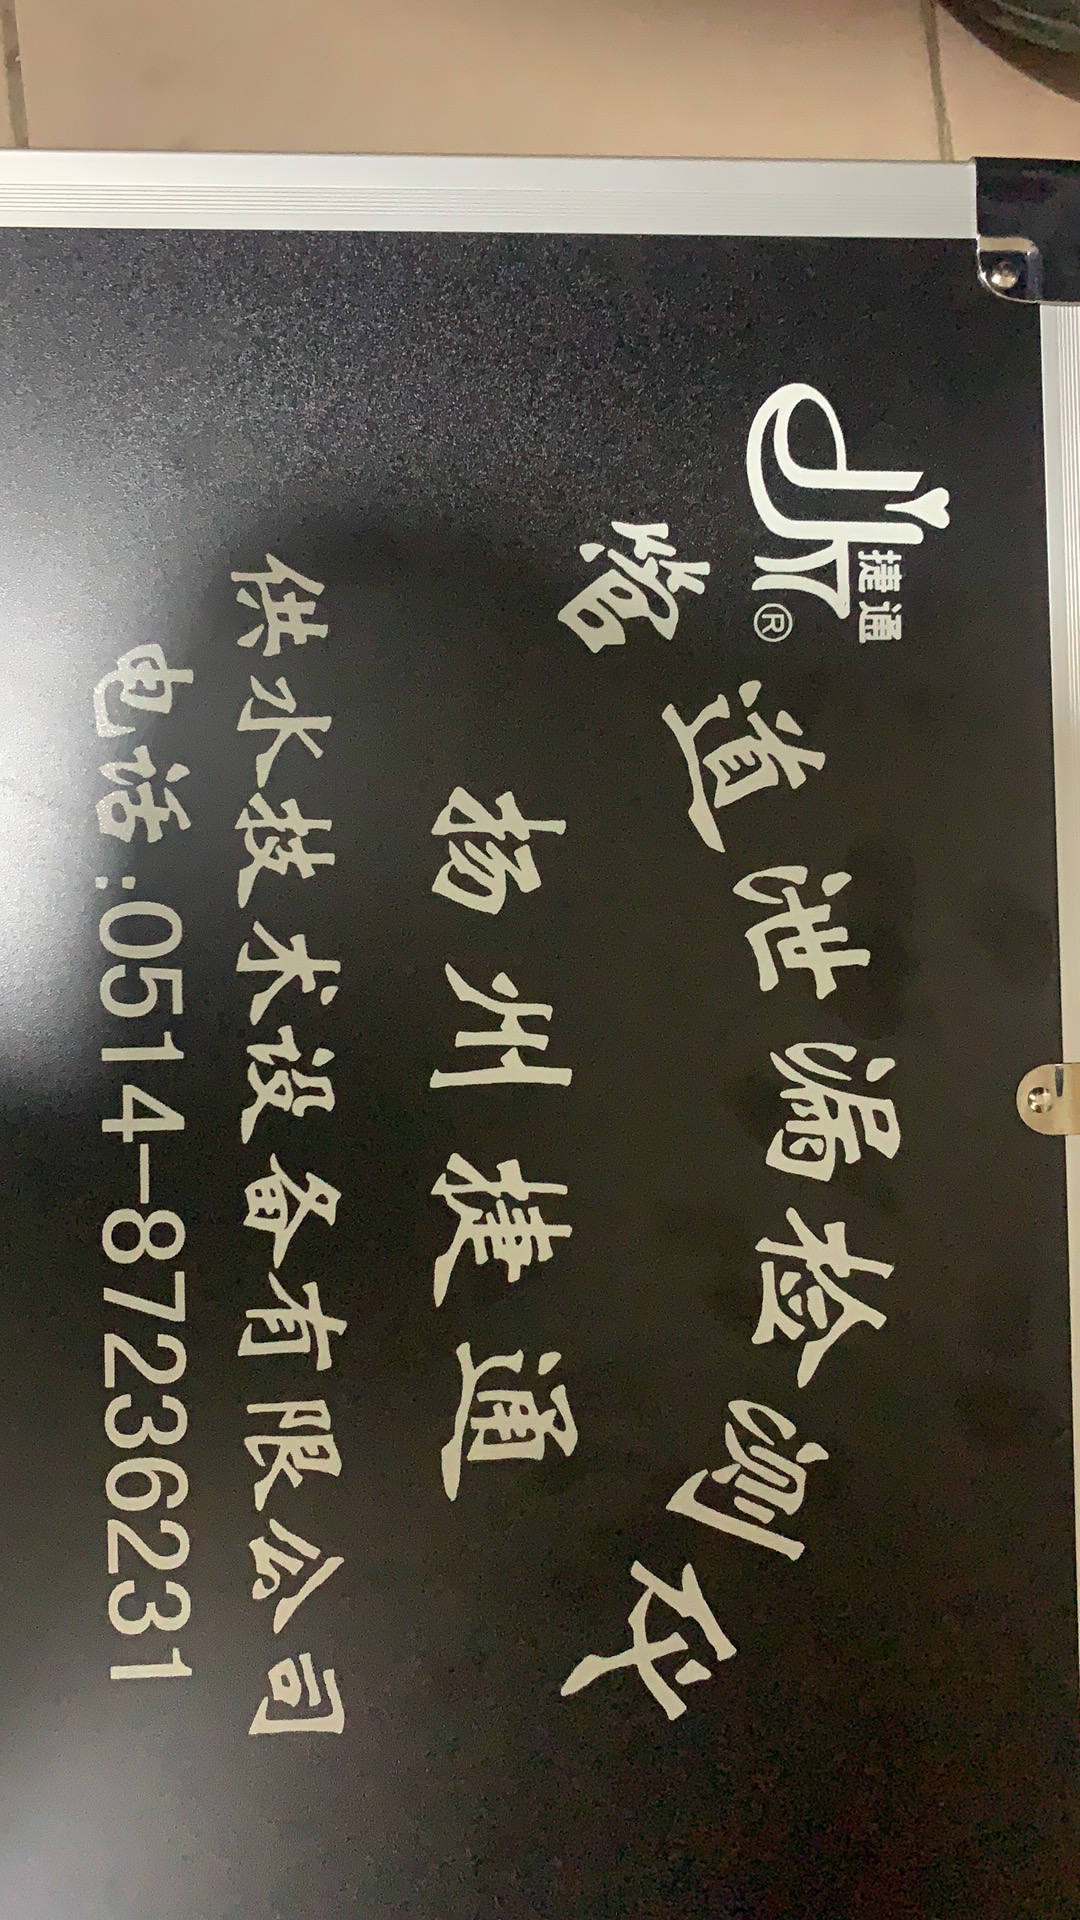 捷通
®
管道泄漏检测仪
扬州捷通
供水技术设备有限公司
电话:0514-87236231